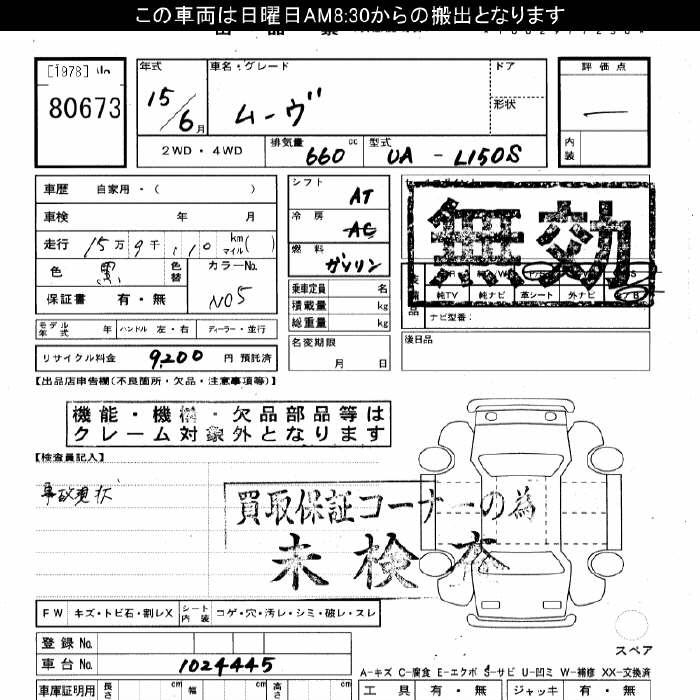 この車両は日曜日AM8:30からの搬出となります
出 品 票
[1978]
80673
年式
15/6月
車名・グレード
ムーヴ
ドア
形状
評価点
―
内装
2WD・4WD
排気量 660 cc
型式 UA - L150S
車歴 自家用・( )
車検 年 月
走行 15万9千110 km マイル( )
色 黒 色替 カラーNo. N05
保証書 有・無
モデル年式 年 ハンドル 左・右 ディーラー・並行
リサイクル料金 9,200 円 預託済
シフト AT
冷房 AC
燃料 ガソリン
乗車定員 名
積載量 kg
総重量 kg
名変期限
月 日
無効
純TV 純ナビ 革シート 外ナビ
品 ナビ型番:
後日品
【出品店申告欄(不良箇所・欠品・注意事項等)】
機能・機構・欠品部品等は
クレーム対象外となります
【検査員記入】
事故現状
買取保証コーナーの為
未検査
FW キズ・トビ石・割レX シート内装 コゲ・穴・汚レ・シミ・破レ・スレ
登録No.
車台No. 1024445
スペア
A-キズ C-腐食 E-エクボ S-サビ U-凹ミ W-補修 XX-交換済
車庫証明用 長さ cm 幅 cm 高さ cm
工具 有・無 ジャッキ 有・無